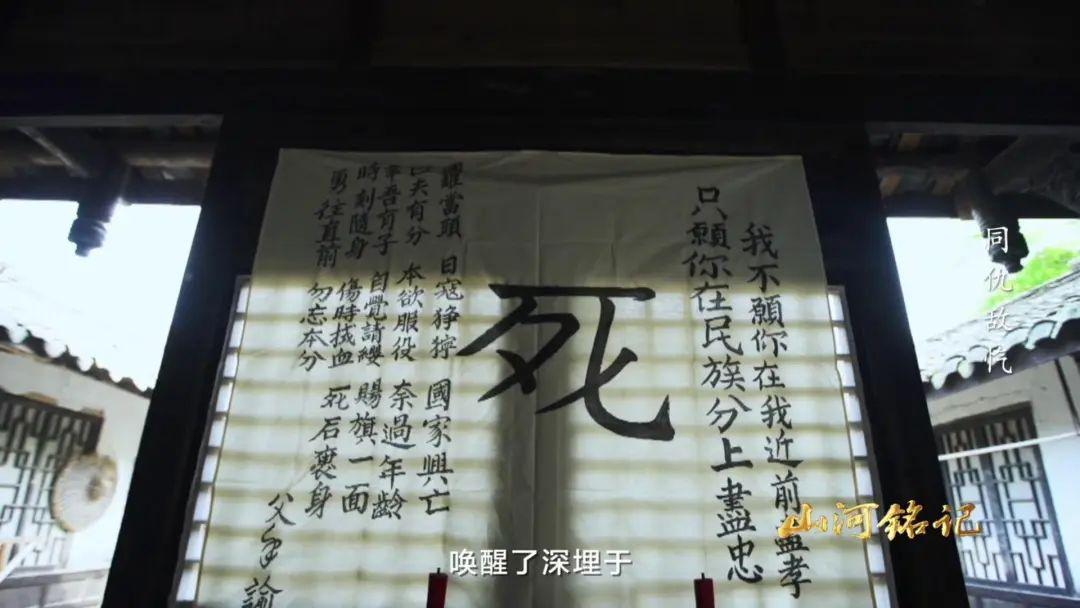 我不願你在我近前盡孝
只願你在民族分上盡忠
死
難當頭 日寇猙獰 國家興亡
匹夫有分 本欲服役 奈過年齡
幸吾有子 自覺請纓 賜旗一面
時刻隨身 傷時拭血 死后裹身
勇往直前 勿忘本分
父手諭
同仇敌忾
山河铭记
唤醒了深埋于